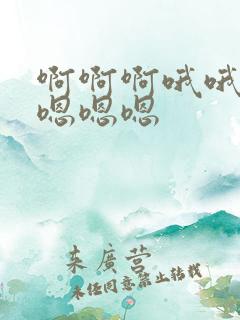 啊啊啊哦哦
嗯嗯嗯
来廣营
未经同意禁止转载